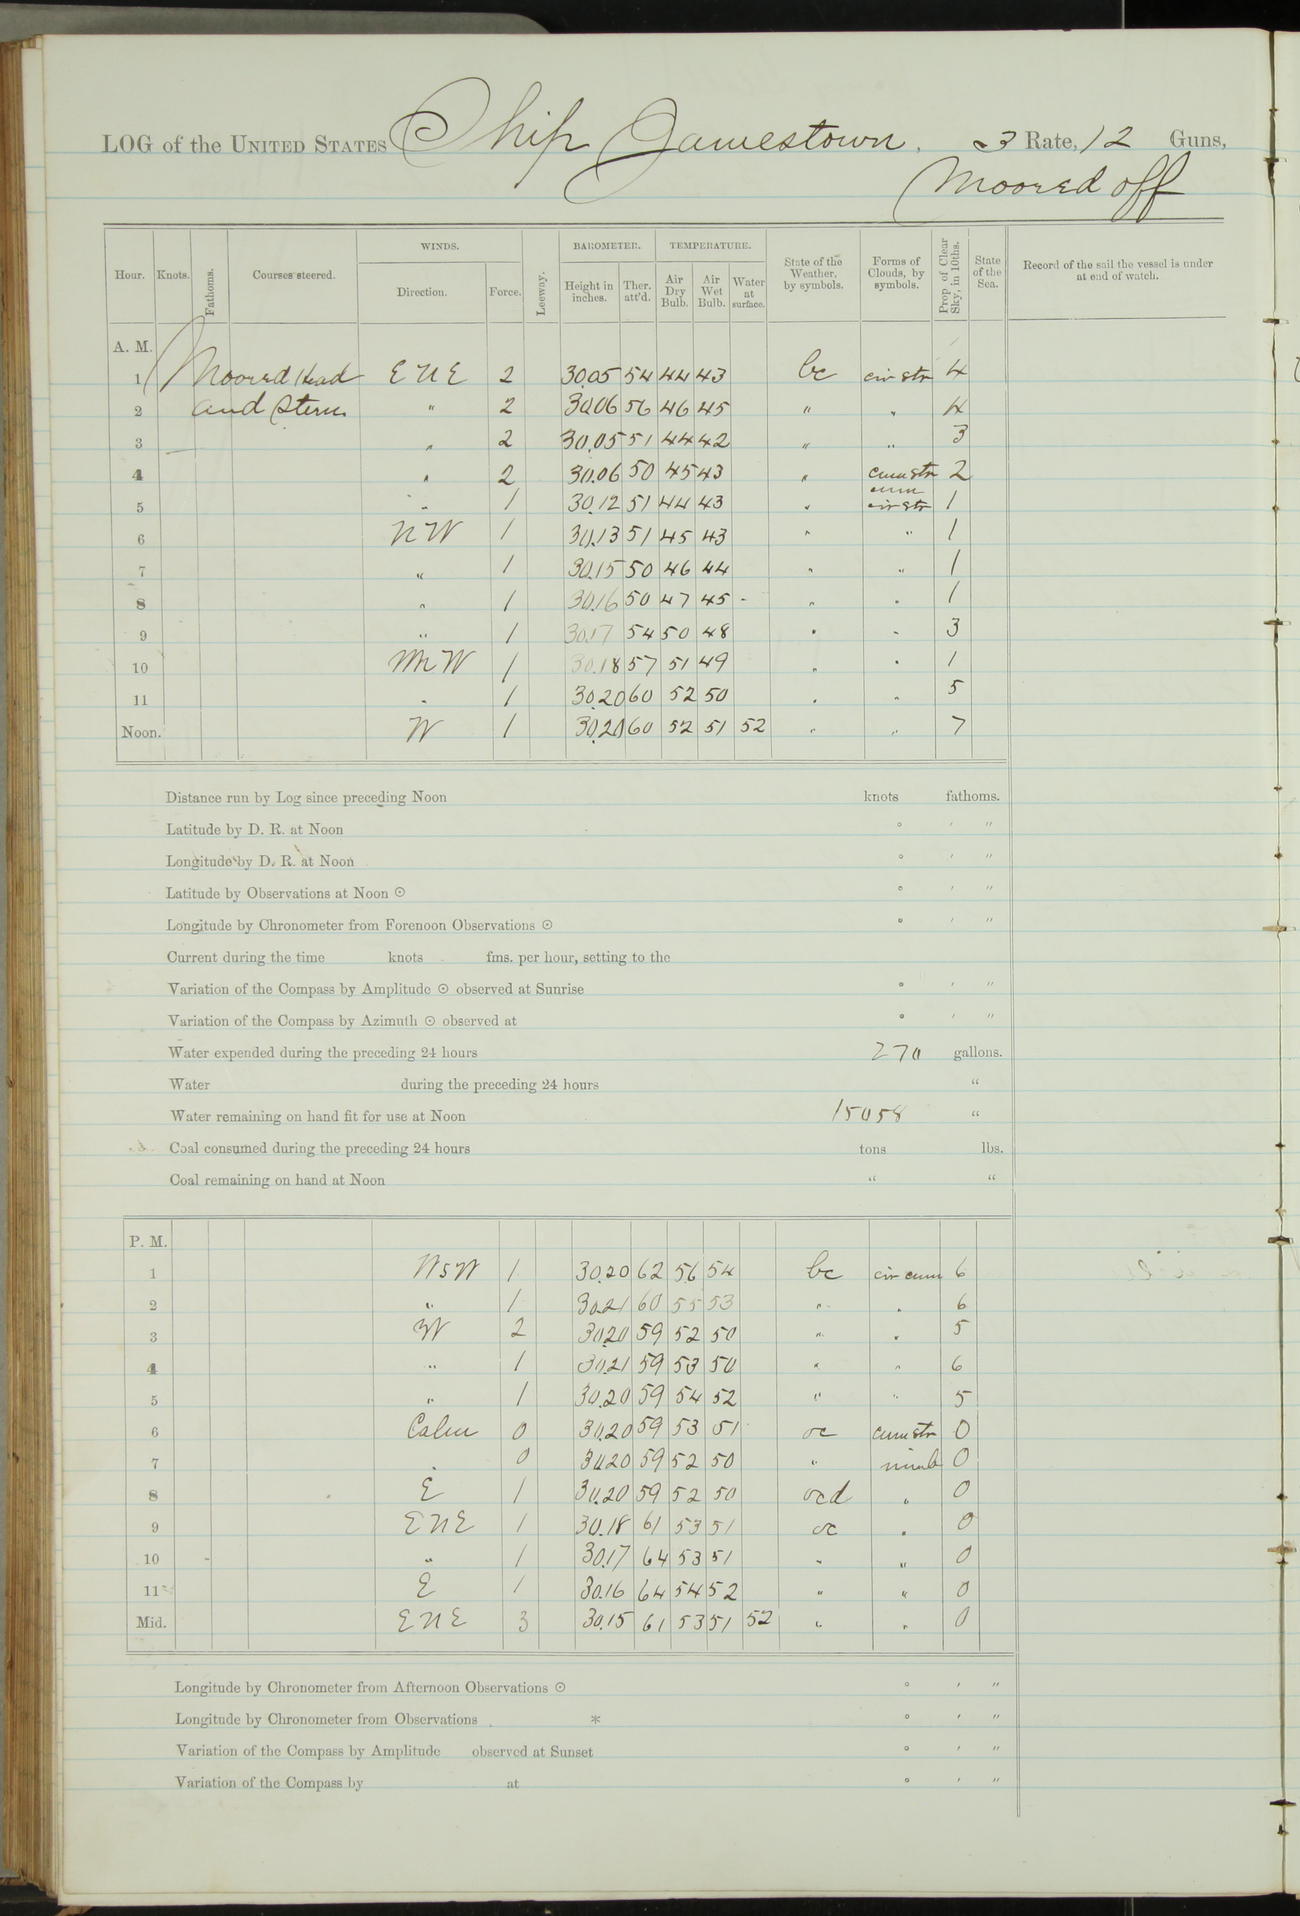 LOG of the UNITED STATES Ship Jamestown, 3 Rate, 12 Guns,
Moored off
Hour. Knots. Fathoms. Courses steered. WINDS. Direction. Force. Leeway. BAROMETER. Height in inches. Ther. att'd. TEMPERATURE. Air Dry Bulb. Air Wet Bulb. Water at surface. State of the Weather, by symbols. Forms of Clouds, by symbols. Prop. of Clear Sky, in 10ths. State of the Sea. Record of the sail the vessel is under at end of watch.
A. M.
1 Moored Head ENE 2 30.05 54 44 43 bc cir str 4
2 and Stern " 2 30.06 56 46 45 " " 4
3 " 2 30.05 51 44 42 " " 3
4 " 2 30.06 50 45 43 " cum str 2
5 " 1 30.12 51 44 43 " cum cir str 1
6 NW 1 30.13 51 45 43 " " 1
7 " 1 30.15 50 46 44 " " 1
8 " 1 30.16 50 47 45 - " " 1
9 " 1 30.17 54 50 48 " " 3
10 WNW 1 30.18 57 51 49 " " 1
11 " 1 30.20 60 52 50 " " 5
Noon. W 1 30.20 60 52 51 52 " " 7
Distance run by Log since preceding Noon knots fathoms.
Latitude by D. R. at Noon ° ′ ″
Longitude by D. R. at Noon ° ′ ″
Latitude by Observations at Noon ☉ ° ′ ″
Longitude by Chronometer from Forenoon Observations ☉ ° ′ ″
Current during the time knots fms. per hour, setting to the
Variation of the Compass by Amplitude ☉ observed at Sunrise ° ′ ″
Variation of the Compass by Azimuth ☉ observed at ° ′ ″
Water expended during the preceding 24 hours 270 gallons.
Water during the preceding 24 hours "
Water remaining on hand fit for use at Noon 15058 "
Coal consumed during the preceding 24 hours tons lbs.
Coal remaining on hand at Noon " "
P. M.
1 WSW 1 30.20 62 56 54 bc cir cum 6
2 " 1 30.21 60 55 53 " " 6
3 W 2 30.20 59 52 50 " " 5
4 " 1 30.21 59 53 50 " " 6
5 " 1 30.20 59 54 52 " " 5
6 Calm 0 30.20 59 53 51 oc cum str 0
7 " 0 30.20 59 52 50 " nimb 0
8 E 1 30.20 59 52 50 ocd " 0
9 ENE 1 30.18 61 53 51 oc " 0
10 " 1 30.17 64 53 51 " " 0
11 E 1 30.16 64 54 52 " " 0
Mid. ENE 3 30.15 61 53 51 52 " " 0
Longitude by Chronometer from Afternoon Observations ☉ ° ′ ″
Longitude by Chronometer from Observations * ° ′ ″
Variation of the Compass by Amplitude observed at Sunset ° ′ ″
Variation of the Compass by at ° ′ ″